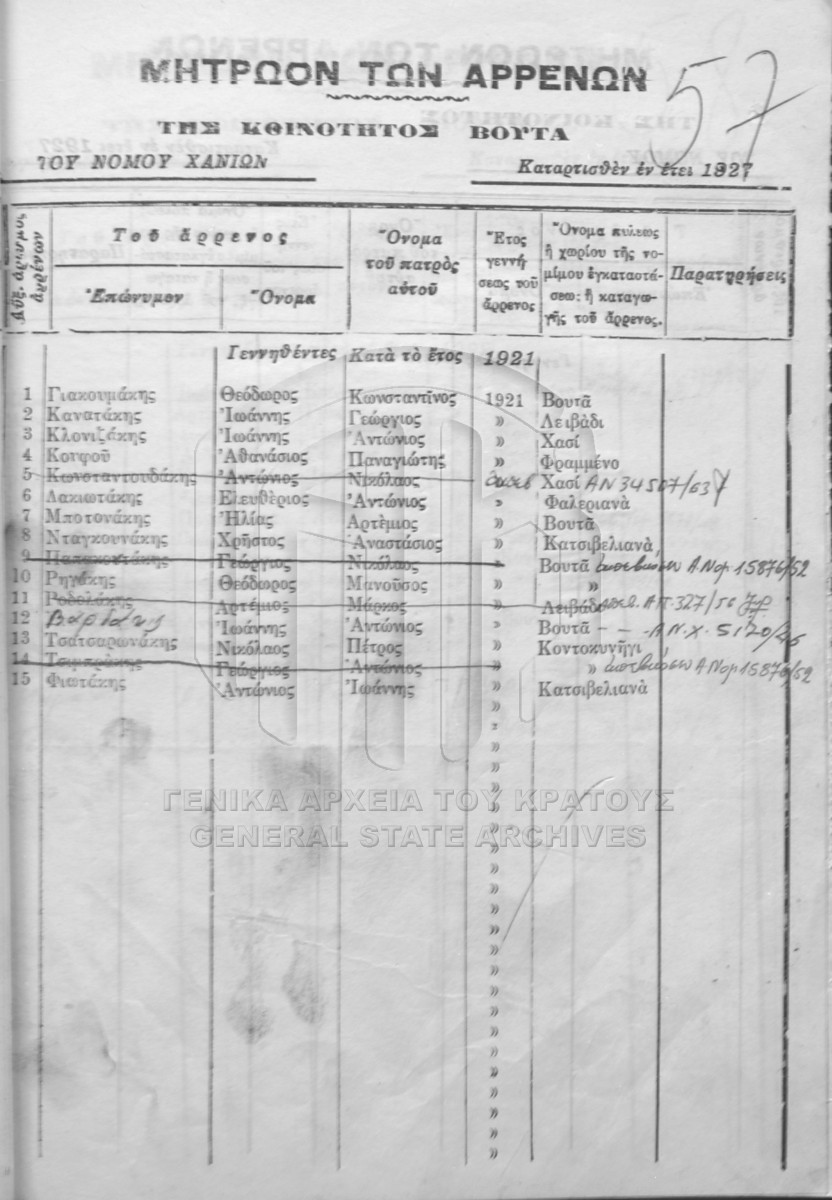 ΜΗΤΡΩΟΝ ΤΩΝ ΑΡΡΕΝΩΝ
57
ΤΗΣ ΚΟΙΝΟΤΗΤΟΣ ΒΟΥΤΑ
ΤΟΥ ΝΟΜΟΥ ΧΑΝΙΩΝ
Καταρτισθὲν ἐν ἔτει 1927
Αὔξ. ἀριθμὸς ἀρρένων
Τοῦ ἄρρενος
Ἐπώνυμον
Ὄνομα
Ὄνομα
τοῦ πατρὸς
αὐτοῦ
Ἔτος
γεννή
σεως τοῦ
ἄρρενος
Ὄνομα πόλεως
ἢ χωρίου τῆς νο-
μίμου ἐγκαταστά-
σεως ἢ καταγω-
γῆς τοῦ ἄρρενος.
Παρατηρήσεις
Γεννηθέντες Κατὰ τὸ ἔτος 1921
1 Γιακουμάκης Θεόδωρος Κωνσταντῖνος 1921 Βουτᾶ
2 Κανατάκης Ἰωάννης Γεώργιος » Λειβάδι
3 Κλονιζάκης Ἰωάννης Ἀντώνιος » Χασί
4 Κουφοῦ Ἀθανάσιος Παναγιώτης » Φραμμένο
5 Κωνσταντουδάκης Ἀντώνιος Νικόλαος Χασί ΑΝ 34507/63
6 Λακιωτάκης Ἐλευθέριος Ἀντώνιος » Φαλεριανὰ
7 Μποτονάκης Ἠλίας Ἀρτέμιος » Βουτᾶ
8 Νταγκουνάκης Χρῆστος Ἀναστάσιος » Κατσιβελιανὰ
9 Παπακουτάκης Γεώργιος Νικόλαος » Βουτᾶ Α.Νομ 15876/52
10 Ρηγάκης Θεόδωρος Μανοῦσος » »
11 Ροδολάκης Ἀρτέμιος Μάρκος » Λειβάδι ΑΠ.327/56
12 Βαριάνης Ἰωάννης Ἀντώνιος » Βουτᾶ - - Α.Ν.Χ. 5170/46
13 Τσατσαρωνάκης Νικόλαος Πέτρος » Κοντοκυνῆγι
14 Τσιμπράκης Γεώργιος Ἀντώνιος » » Α Νομ 15876/52
15 Φιωτάκης Ἀντώνιος Ἰωάννης » Κατσιβελιανὰ
»
»
»
»
»
»
»
»
»
»
»
»
»
»
»
»
»
»
»
»
»
»
»
ΓΕΝΙΚΑ ΑΡΧΕΙΑ ΤΟΥ ΚΡΑΤΟΥΣ
GENERAL STATE ARCHIVES